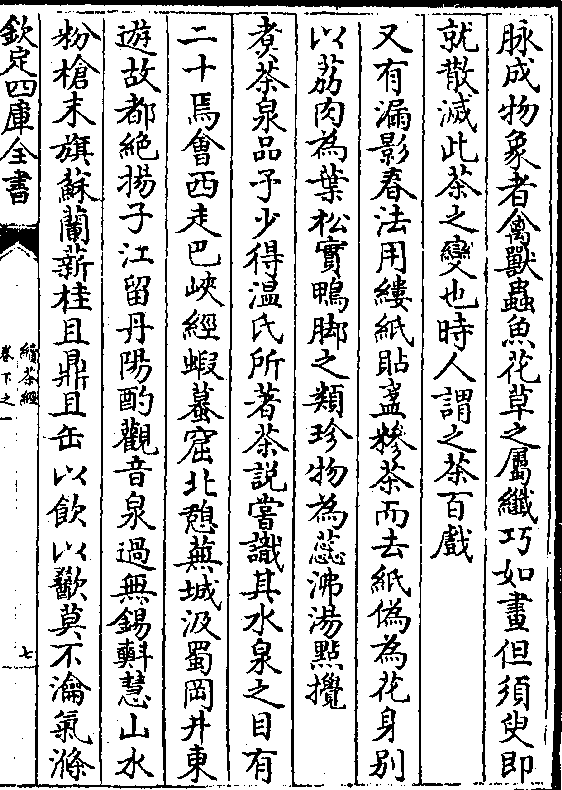 脉成物象者禽獸蟲魚花草之屬纎巧如畫但須臾即
就散滅此茶之變也時人謂之茶百戲
又有漏影春法用縷紙貼盞糝茶而去紙偽為花身别
以荔肉為葉松實鴨脚之類珍物為蕊沸湯點攪
煑茶泉品予少得温氏所著茶説嘗識其水泉之目有
二十焉會西走巴峽經蝦蟇窟北憩蕪城汲蜀岡井東
遊故都絶揚子江留丹陽酌觀音泉過無錫㪺慧山水
粉槍末旗蘇蘭薪桂且鼎且缶以飲以歠莫不瀹氣滌
欽定四庫全書
續茶經
卷下之一
七